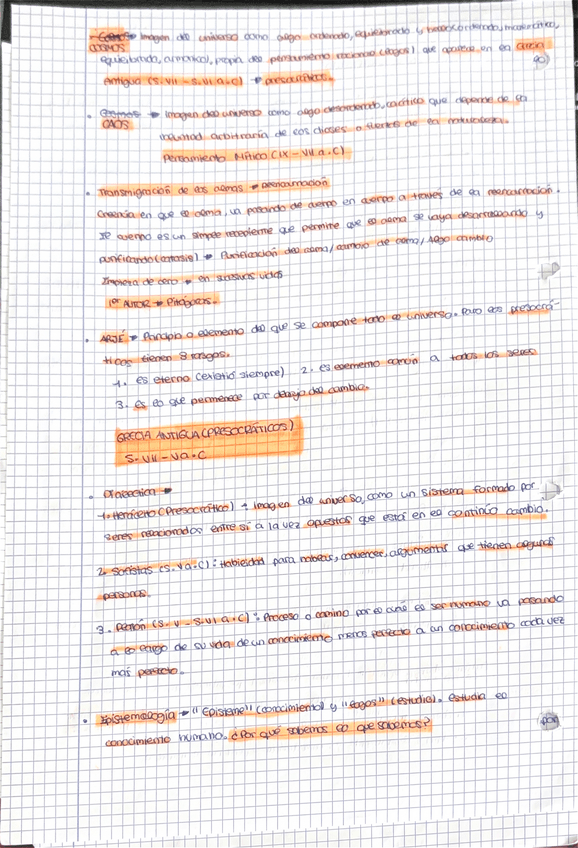 COSMOS → Imagen del universo como algo ordenado, equilibrado y
equilibrado, armónico, propia del pensamiento racional (logos) que aparece en la Grecia
Antigua (S. VII - S. VI a.C) → presocráticos.
CAOS → Imagen del universo como algo desordenado, caótico que depende de la
voluntad arbitraria de los dioses o fuerzas de la naturaleza.
Pensamiento Mítico (IX - VII a.C)
• Transmigración de las almas → reencarnación
Creencia en que el alma, va pasando de cuerpo en cuerpo a través de la reencarnación.
El cuerpo es un simple recipiente que permite que el alma se vaya desarrollando y
purificando (catarsis) → Purificación del alma / cambio de alma / Algo cambio
Empieza de cero → en sucesivas vidas
1er AUTOR → Pitágoras.
• ARJÉ → Principio o elemento del que se compone todo el universo. Para los presocrá-
ticos tienen 3 rasgos.
1. es eterno (existió siempre) 2. es elemento común a todos los seres
3. es lo que permanece por debajo del cambio.
GRECIA ANTIGUA (PRESOCRÁTICOS)
S. VII - V a.C
• Dialéctica →
1. Heráclito (Presocrático) → Imagen del universo, como un sistema formado por
seres relacionados entre sí a la vez opuestos que está en el continuo cambio.
2. Sofistas (S. V a.C): Habilidad para hablar, convencer, argumentar que tienen algunas
personas.
3. Platón (S. V - S. VI a.C): Proceso o camino por el cual el ser humano va pasando
a lo largo de su vida de un conocimiento menos perfecto a un conocimiento cada vez
más perfecto.
• Epistemología → "Episteme" (conocimiento) y "logos" (estudio). estudia el
conocimiento humano. ¿Por qué sabemos lo que sabemos?